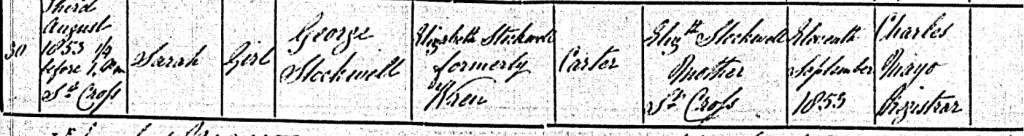 30
Third
August
1853 1/4
before 1, am
St Cross
Sarah
Girl
George
Stockwell
Elizabeth Stockwell
formerly
Wren
Carter
Elizth Stockwell
Mother
St Cross
Eleventh
September
1853
Charles
Mayo
Registrar